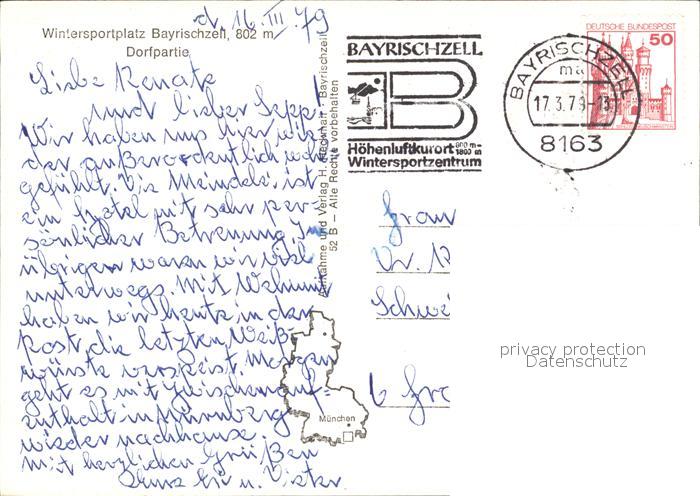 Wintersportplatz Bayrischzell, 802 m
Dorfpartie
d. 16. III 79
Liebe Renate
und lieber Sepp
Wir haben uns hier wie-
der außerordentlich wohl
gefühlt. Die Meindelei ist
ein Hotel mit sehr per-
sönlicher Betreuung. Im
übrigen waren wir viel
unterwegs. Mit Wehmut
haben wir heute in der
Post die letzten Weiß-
würste verspeist. Morgen
geht es mit Zwischenauf-
enthalt in Nürnberg
wieder nachhause.
Mit herzlichen Grüßen
u. Dieter
Aufnahme und Verlag H. Bayrischzell
52 B – Alle Rechte vorbehalten
München
BAYRISCHZELL
B
Höhenluftkurort 800 m-
Wintersportzentrum 1800 m
BAYRISCHZELL
ma
17.3.79
8163
DEUTSCHE BUNDESPOST
50
privacy protection
Datenschutz